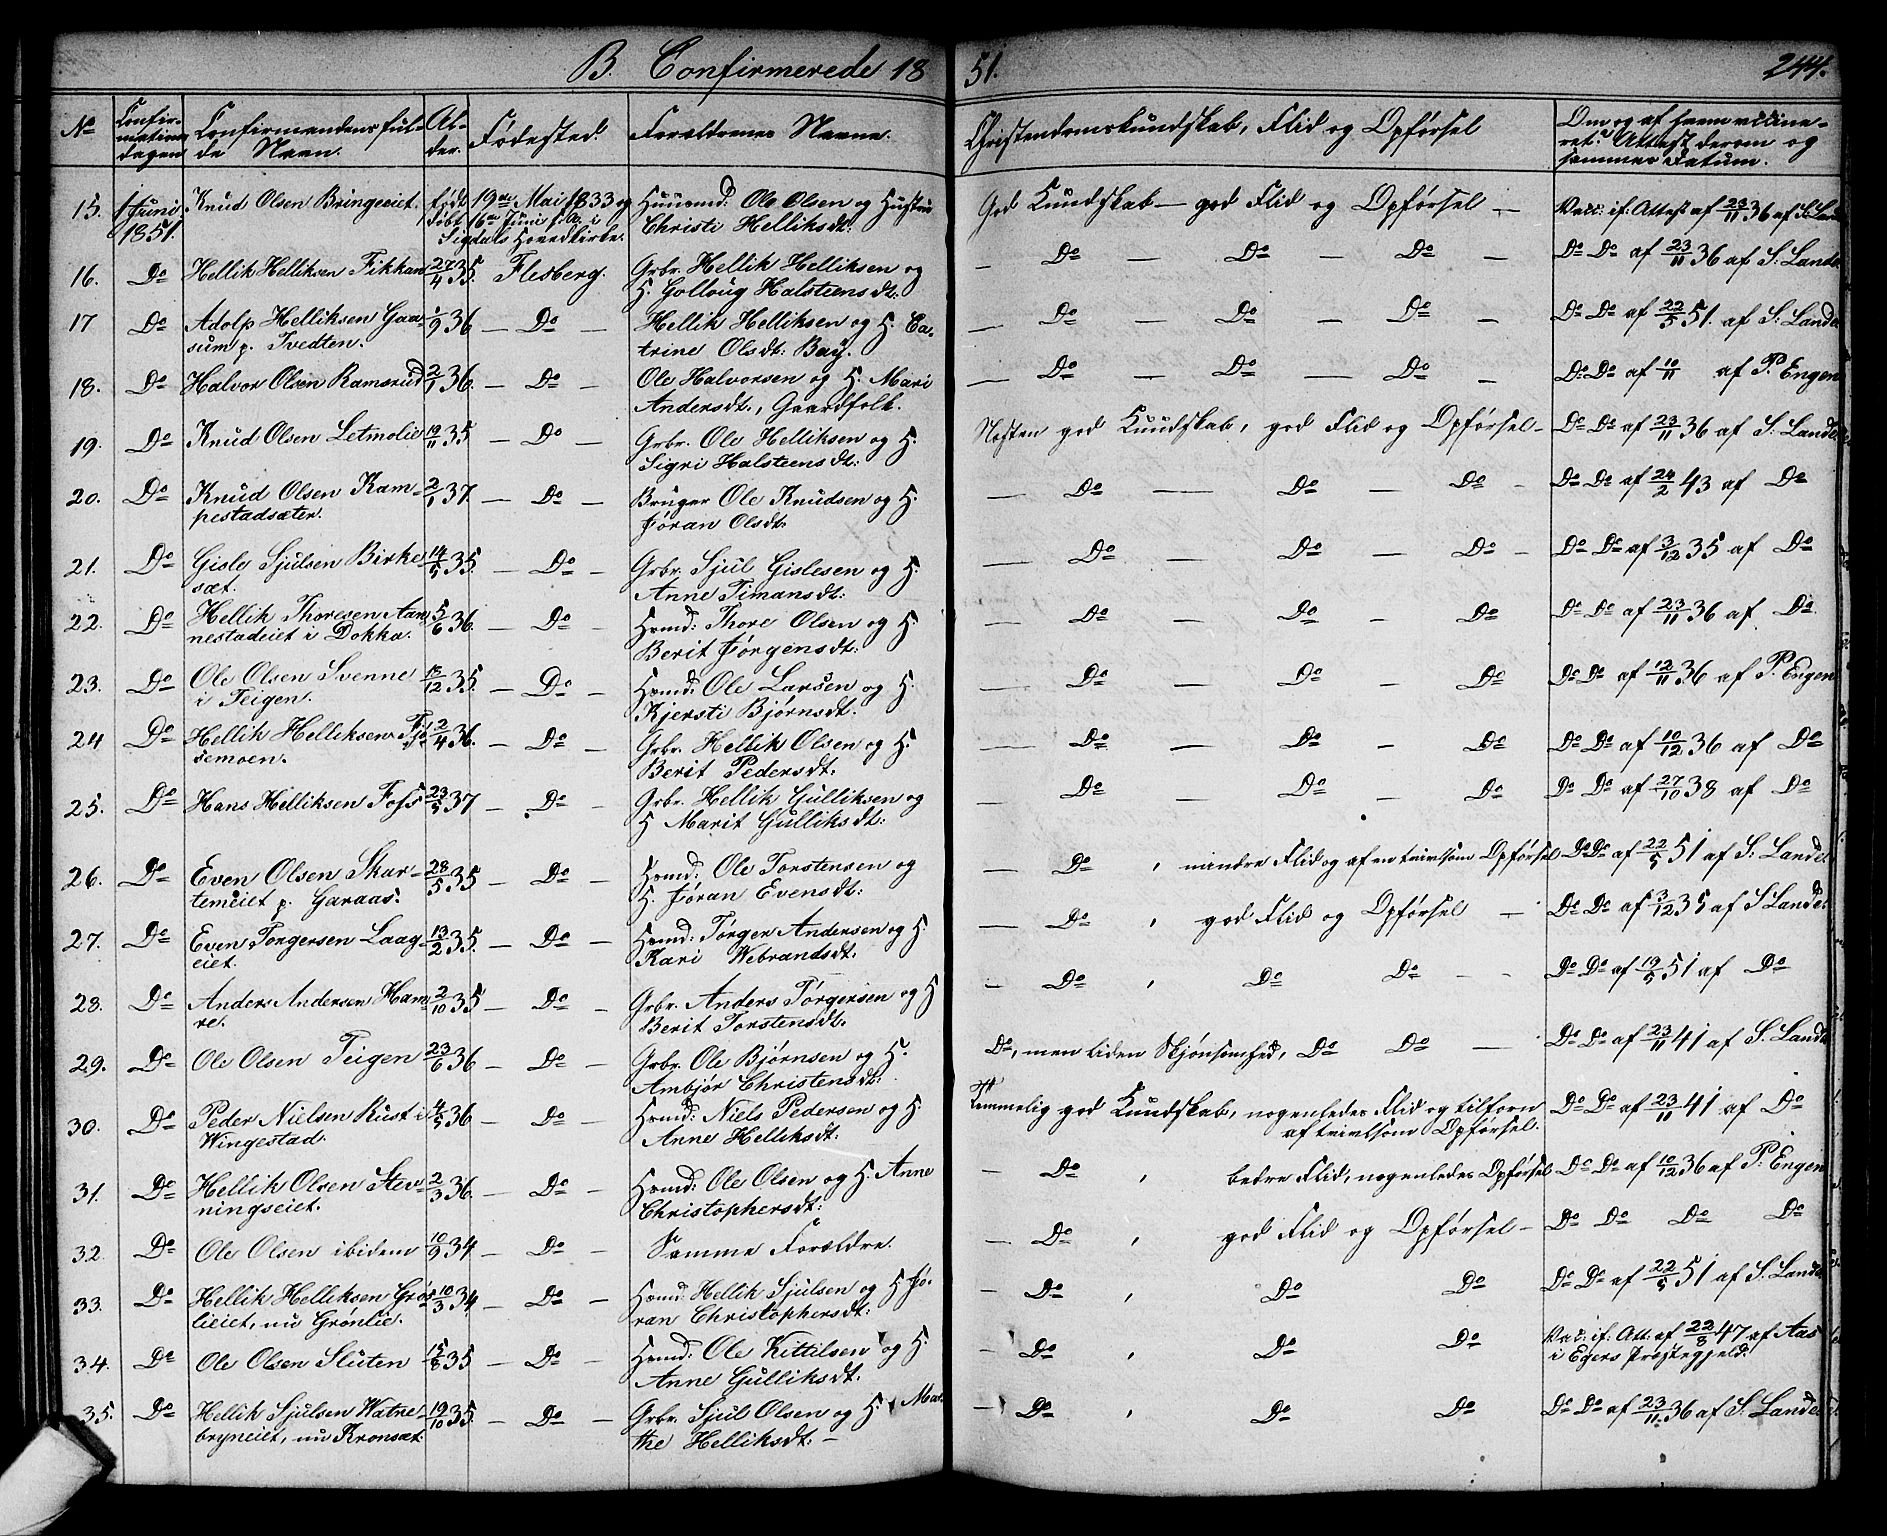 B. Confirmerede 18
51.
244.
No
Confir-
mations
dagen
Confirmandens ful-
de Navn.
Al-
der.
Fødested.
Forældrenes Navne.
Christendomskundskab, Flid og Opførsel
Om og af hvem vaccine-
ret? Attest derom og
sammes Datum.
15. 1 Juni Knud Olsen Bringeeiet. født 19de Mai 1833 og Huusmd: Ole Olsen og Hustru God Kundskab — god Flid og Opførsel — Vacc: if: Attest af 23/11 36 af S: Lande
1851. døbt 16de Juni s. A. i Christi Helliksdt:
Sigdals Hovedkirke.
16. Do Hellik Helliksen Fikkan 27/4 35. Flesberg. Grbr. Hellik Helliksen og — Do — Do — Do — Do Do af 23/11 36 af S: Lande
H. Golloug Halsteensdt:
17 Do Adolp Helliksen Gaa- 1/9 36 — Do — Hellik Helliksen og H. Ca- — Do — Do — Do — Do Do af 22/5 51. af S: Lande
sum p. Tvedten. trine Olsdt: Bay.
18. Do Halvor Olsen Ramsrud 2/1 36. — Do — Ole Halvorsen og H. Mari — Do — Do — Do — Do Do af 10/11 af P. Engen
Andersdt., Gaardfolk.
19. Do Knud Olsen Letmolie 19/11 35 — Do — Grbr. Ole Helliksen og H. Næsten god Kundskab, god Flid og Opførsel — Do Do af 23/11 36 af S: Lande
Sigri Halsteensdt:
20. Do Knud Olsen Kam- 2/1 37. — Do — Bruger Ole Knudsen og H. — Do — Do — Do — Do Do af 24/2 43 af Do
pestadsæter. Jøran Olsdt:
21. Do Gisle Sjulsen Birke- 14/5 35. — Do — Grbr. Sjul Gislesen og H. — Do — Do — Do — Do Do af 3/12 35 af Do
sæt. Anne Timansdt:
22. Do Hellik Thoresen Aan- 5/6 36. — Do — Hsmd: Thore Olsen og H. — Do — Do — Do Do Do af 23/11 36 af Do
nestadeiet i Dokka. Berit Jørgensdt:
23. Do Ole Olsen Svenne 13/12 35. — Do — Hsmd: Ole Larsen og H. — Do — Do — Do Do Do af 12/11 36 af P. Engen
i Teigen. Kjersti Bjørnsdt:
24 Do Hellik Helliksen Fjø- 2/4 36. — Do — Grbr. Hellik Olsen og H. — Do — Do — Do Do Do af 10/12 36 af Do
semoen. Berit Pedersdt:
25. Do Hans Helliksen Foss 23/5 37 — Do — Grbr. Hellik Gulliksen og — Do — Do — Do Do Do af 27/10 38 af Do
H Marit Gulliksdt:
26. Do Even Olsen Skar- 28/5 35 — Do — Hsmd: Ole Torstensen og — Do , mindre Flid og af en tvivlsom Opførsel Do Do af 22/5 51 af S: Lande
temeiet p. Garaas. H. Jøran Evensdt:
27. Do Even Torgersen Laag- 13/2 35. — Do — Hsmd: Torger Andersen og H — Do , god Flid og Opførsel — Do Do af 3/12 35 af S Lande
eiet. Kari Webrandsdt:
28. Do Anders Andersen Ham- 2/10 35 — Do — Grbr. Anders Torgersen og H — Do , Do Do — Do Do af 19/5 51 af Do
re. Berit Torstensdt:
29. Do Ole Olsen Teigen 23/6 36 — Do — Grbr. Ole Bjørnsen og H. Do, men liden Skjønsomhed, Do Do — Do Do af 23/11 41 af S. Lande
Ambjør Christensdt:
30. Do Peder Nielsen Rust i 4/5 36 — Do — Hsmd: Niels Pedersen og H. Temmelig god Kundskab, nogenledes Flid og tilforn Do Do af 23/11 41 af Do
Wingestad. Anne Helliksdt: af tvivlsom Opførsel.
31. Do Hellik Olsen Stev- 2/3 36. — Do — Hsmd: Ole Olsen og H. Anne — Do , bedre Flid, nogenledes Opførsel Do Do af 10/12 36 af P: Engen
ningseiet. Christophersdt:
32. Do Ole Olsen ibidem 10/9 34 — Do — Samme Forældre. — Do , god Flid og Opførsel — Do Do Do Do
33. Do Hellik Helliksen Grøs- 10/3 34 — Do — Hsmd: Hellik Sjulsen og H Jø- — Do , Do Do Do Do af 22/5 51 af S. Lande
lieiet, nu Grønlie. ran Christophersdt:
34. Do Ole Olsen Sluten 15/8 35 — Do — Hsmd: Ole Kittilsen og H. — Do , Do Do Vac: if: Att: af 22/8 47 af Aas
Anne Gulliksdt: i Egers Præstegjeld.
35. Do Hellik Sjulsen Watne- 19/10 35. — Do — Grbr. Sjul Olsen og H Mar- — Do , Do Do Do Do af 23/11 36 af S. Lande
bryneiet, nu Kronsæt. the Helliksdt: —